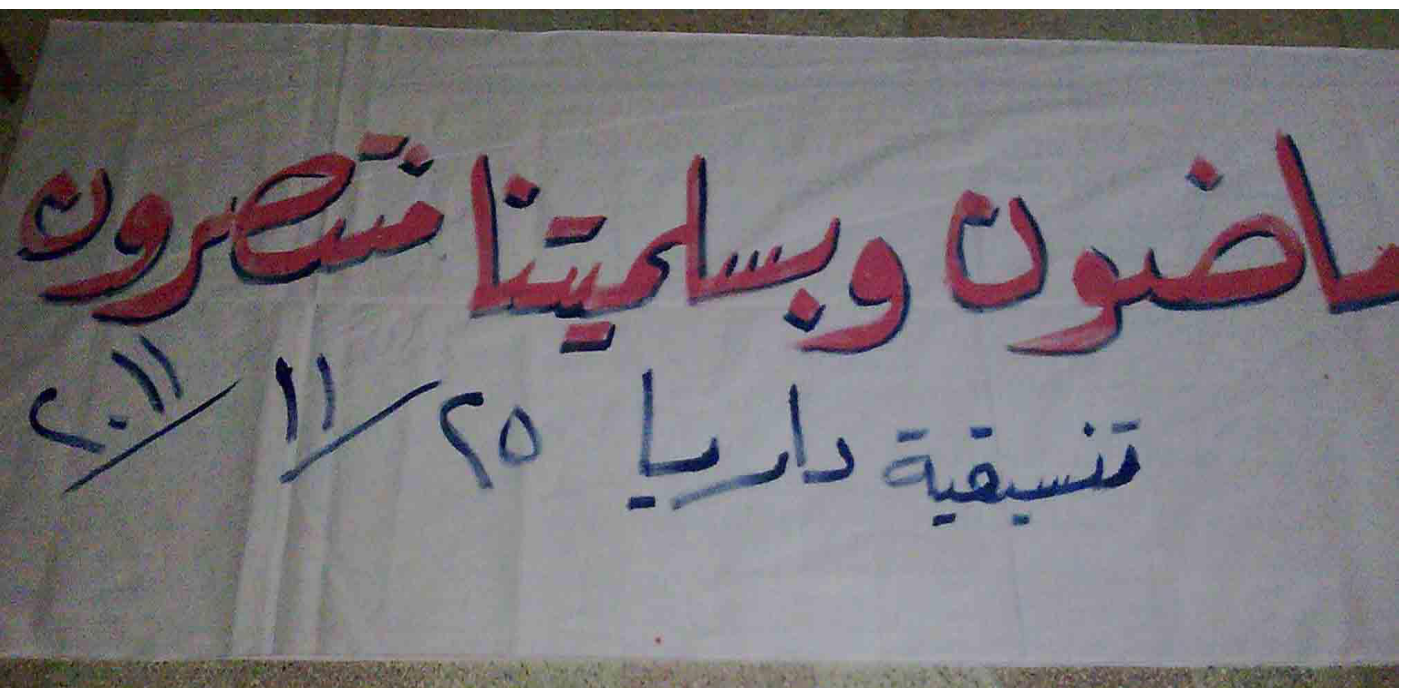 ماضون وبسلميتنا منتصرون
تنسيقية داريا ٢٥/١١/٢٠١١